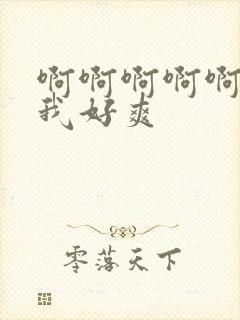 啊啊啊啊啊
我好爽
零落天下